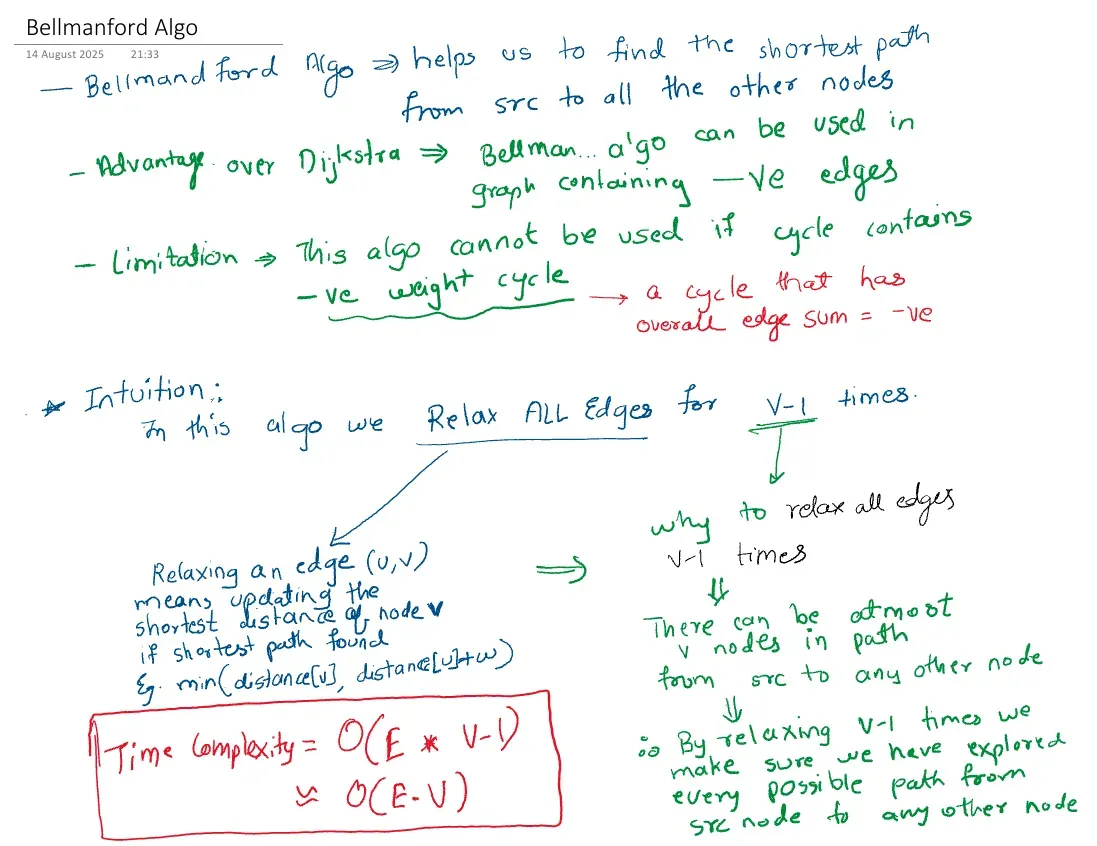 Bellmanford Algo
14 August 2025 21:33
— Bellmandford Algo ⇒ helps us to find the shortest path
from src to all the other nodes
- Advantage over Dijkstra ⇒ Bellman... algo can be used in
graph containing —ve edges
- Limitation ⇒ This algo cannot be used if cycle contains
-ve weight cycle → a cycle that has
overall edge sum = -ve
* Intuition:
In this algo we Relax ALL Edges for V-1 times.
why to relax all edges
V-1 times
Relaxing an edge (u,v) ⇒
means updating the
shortest distance of node v
if shortest path found
Eg. min(distance[v], distance[u]+w)
⇓
There can be atmost
v nodes in path
from src to any other node
⇓
∴ By relaxing V-1 times we
make sure we have explored
every possible path from
src node to any other node
Time Complexity = O(E * V-1)
≈ O(E.V)